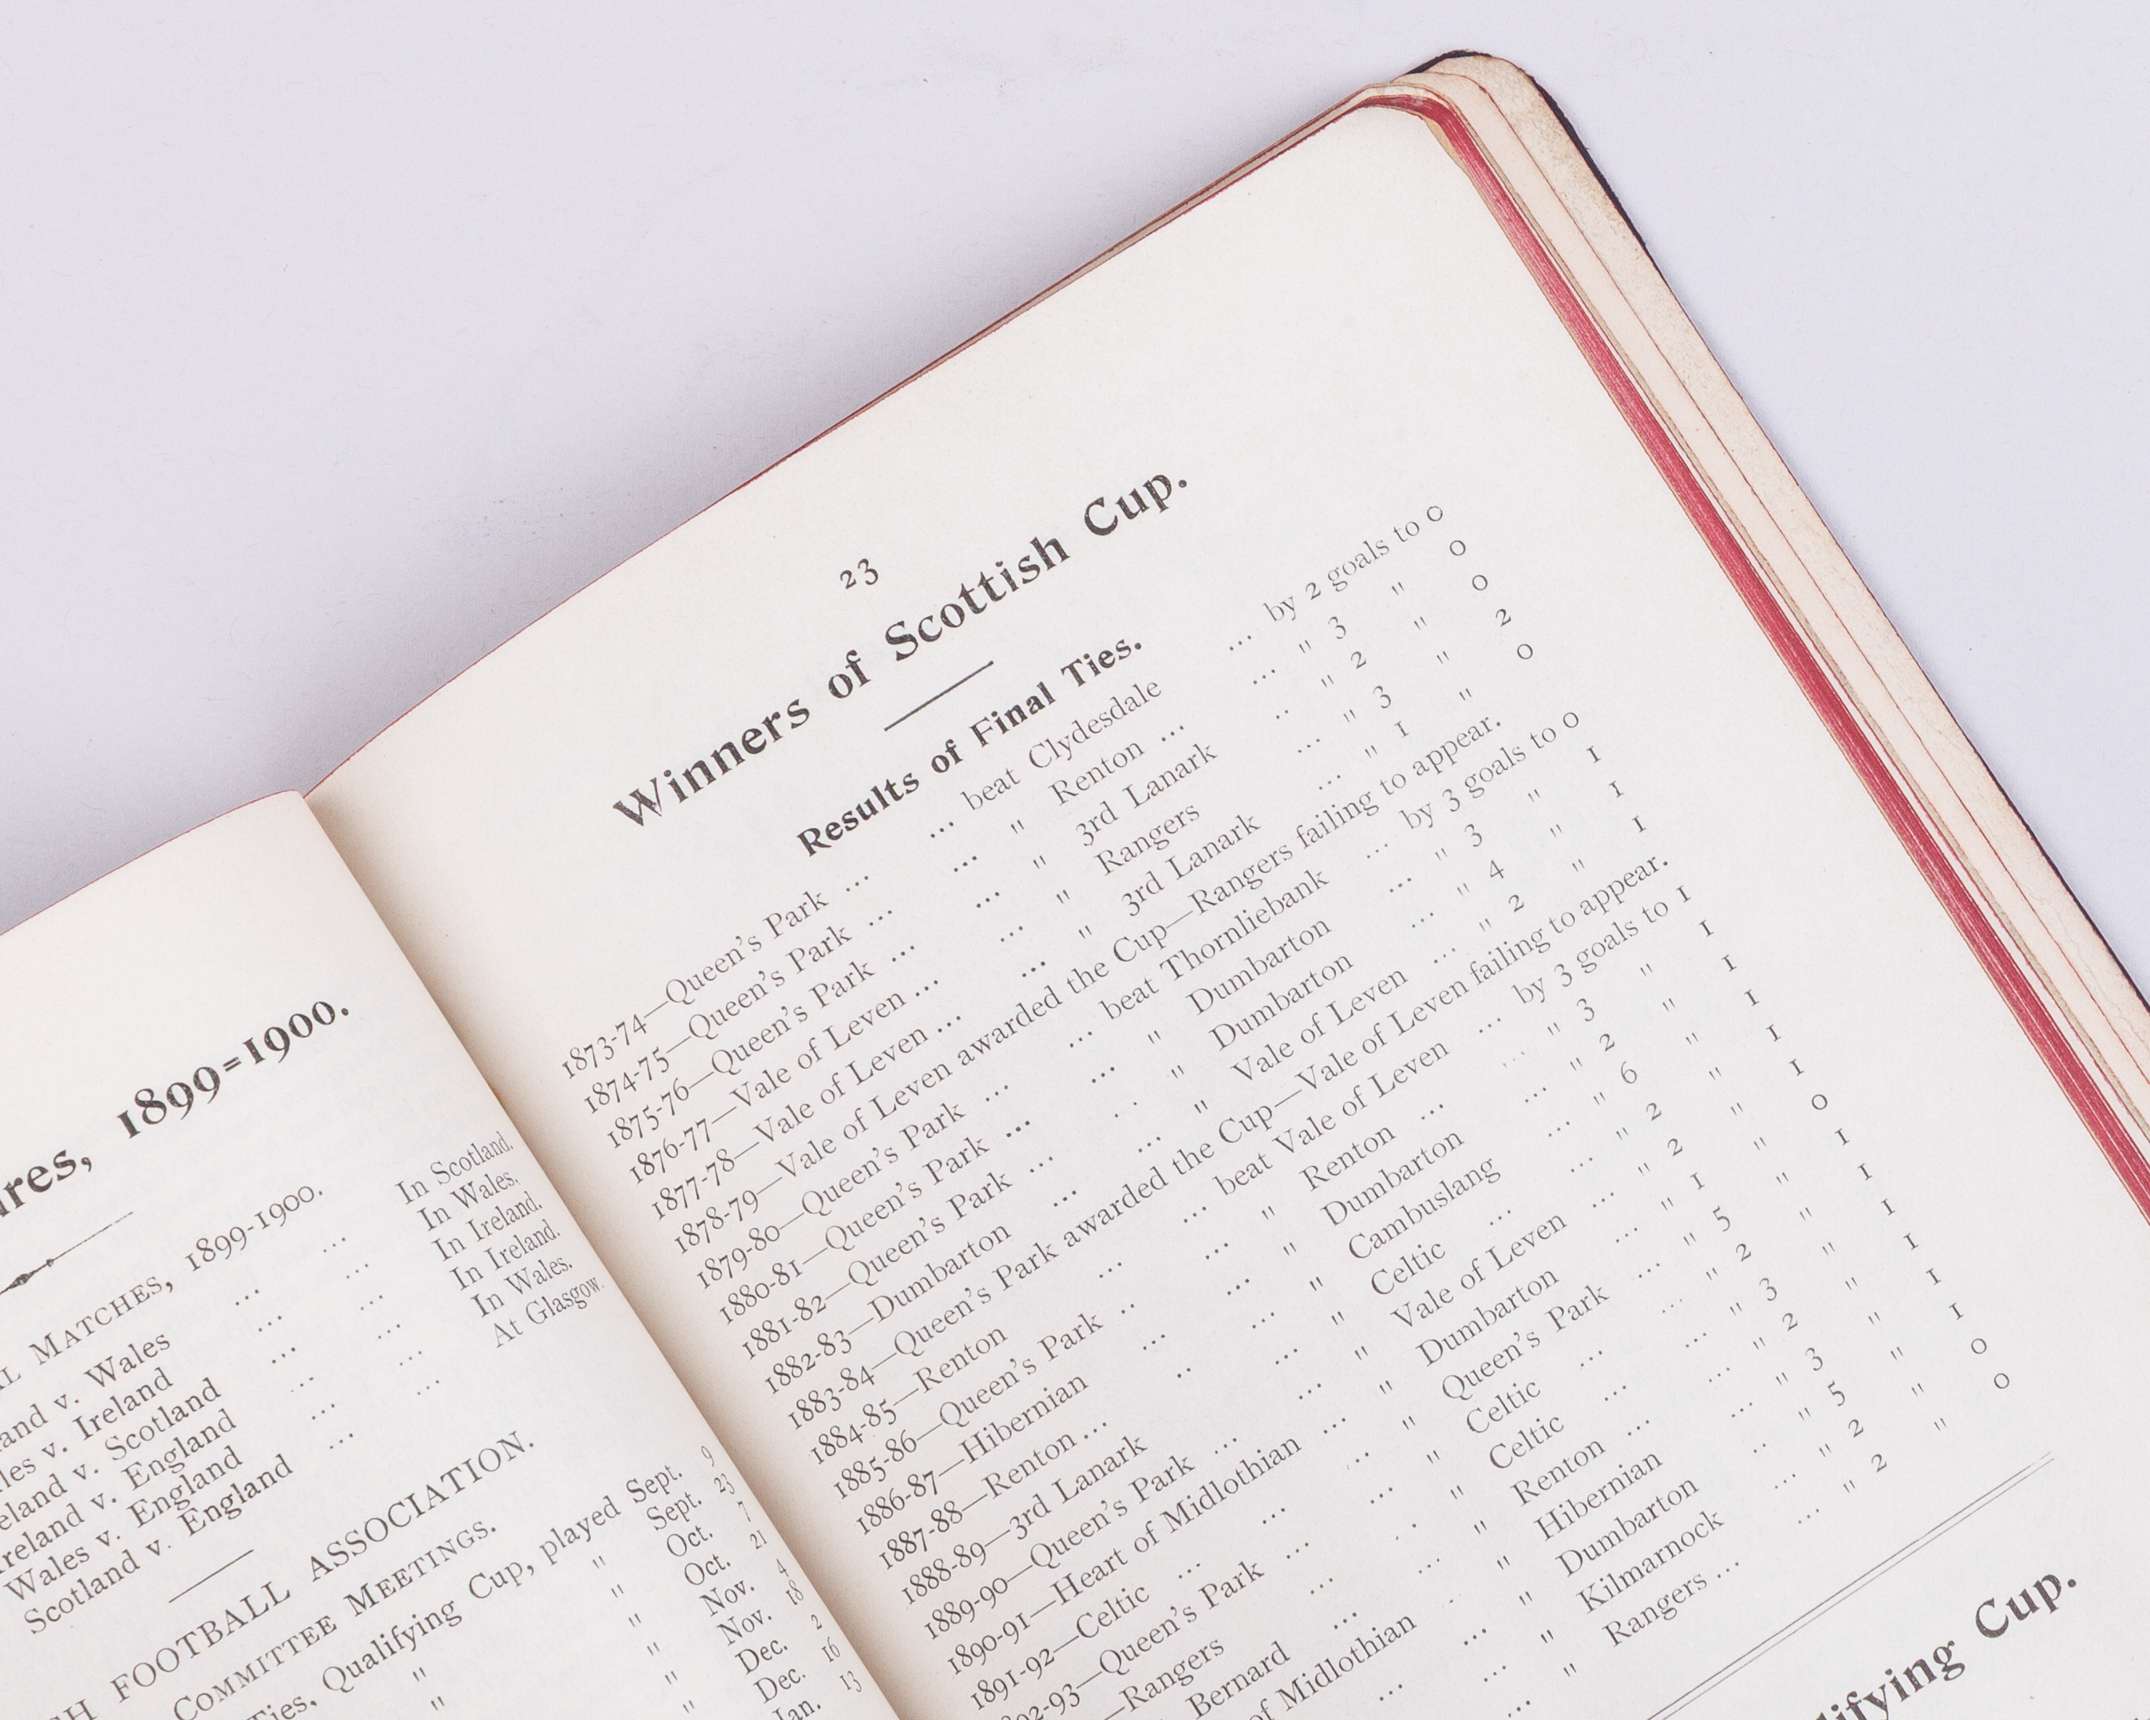 1899=1900.
MATCHES, 1899-1900.
v. Wales ... ... In Scotland.
v. Ireland ... ... In Wales.
v. Scotland ... ... In Ireland.
v. England ... ... In Ireland.
Wales v. England ... ... In Wales.
Scotland v. England ... ... At Glasgow.
FOOTBALL ASSOCIATION.
COMMITTEE MEETINGS.
Ties, Qualifying Cup, played Sept. 9
" " Sept. 23
" " Oct. 7
" Oct. 21
" Nov. 4
" Nov. 18
" Dec. 2
Dec. 16
Jan. 13
23
Winners of Scottish Cup.
Results of Final Ties.
1873-74—Queen's Park ... ... beat Clydesdale ... by 2 goals to 0
1874-75—Queen's Park ... ... " Renton ... ... " 3 " 0
1875-76—Queen's Park ... ... " 3rd Lanark .. " 2 " 0
1876-77—Vale of Leven ... ... " Rangers ... " 3 " 2
1877-78—Vale of Leven ... ... " 3rd Lanark ... " 1 " 0
1878-79—Vale of Leven awarded the Cup—Rangers failing to appear.
1879-80—Queen's Park ... ... beat Thornliebank ... by 3 goals to 0
1880-81—Queen's Park ... ... " Dumbarton ... " 3 " 1
1881-82—Queen's Park ... .. " Dumbarton ... " 4 " 1
1882-83—Dumbarton ... ... " Vale of Leven ... " 2 " 1
1883-84—Queen's Park awarded the Cup—Vale of Leven failing to appear.
1884-85—Renton ... ... beat Vale of Leven ... by 3 goals to 1
1885-86—Queen's Park .. ... " Renton ... ... " 3 " 1
1886-87—Hibernian ... ... " Dumbarton ... " 2 " 1
1887-88—Renton ... .. ... " Cambuslang ... " 6 " 1
1888-89—3rd Lanark ... " Celtic ... ... " 2 " 1
1889-90—Queen's Park ... ... " Vale of Leven ... " 2 " 1
1890-91—Heart of Midlothian ... " Dumbarton ... " 1 " 0
1891-92—Celtic ... ... .. " Queen's Park ... " 5 " 1
92-93—Queen's Park ... ... " Celtic ... ... " 2 " 1
—Rangers ... .. " Celtic ... ... " 3 " 1
Bernard ... ... " Renton ... ... " 2 " 1
of Midlothian . " Hibernian ... " 3 " 1
... ... " Dumbarton .. " 5 " 1
... " Kilmarnock ... " 2 " 0
... " Rangers ... ... " 2 " 0
Cup.